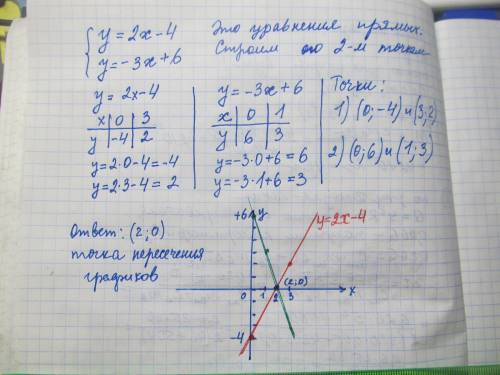 { y = 2x - 4
y = -3x + 6
Это уравнения прямых.
Строим по 2-м точкам
y = 2x - 4
x | 0 | 3
y | -4 | 2
y = 2·0 - 4 = -4
y = 2·3 - 4 = 2
y = -3x + 6
x | 0 | 1
y | 6 | 3
y = -3·0 + 6 = 6
y = -3·1 + 6 = 3
Точки:
1) (0; -4) и (3; 2)
2) (0; 6) и (1; 3)
Ответ: (2; 0)
точка пересечения
графиков
+6 y
y = 2x - 4
(2; 0)
0 1 2 3 x
-4